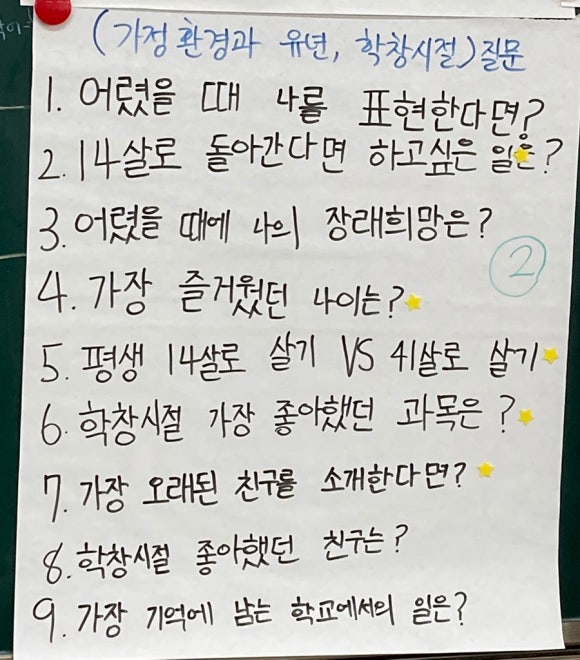 (가정환경과 유년, 학창시절) 질문
1. 어렸을 때 나를 표현한다면?
2. 14살로 돌아간다면 하고싶은 일은?
3. 어렸을 때에 나의 장래희망은?
2
4. 가장 즐거웠던 나이는?
5. 평생 14살로 살기 VS 41살로 살기
6. 학창시절 가장 좋아했던 과목은?
7. 가장 오래된 친구를 소개한다면?
8. 학창시절 좋아했던 친구는?
9. 가장 기억에 남는 학교에서의 일은?